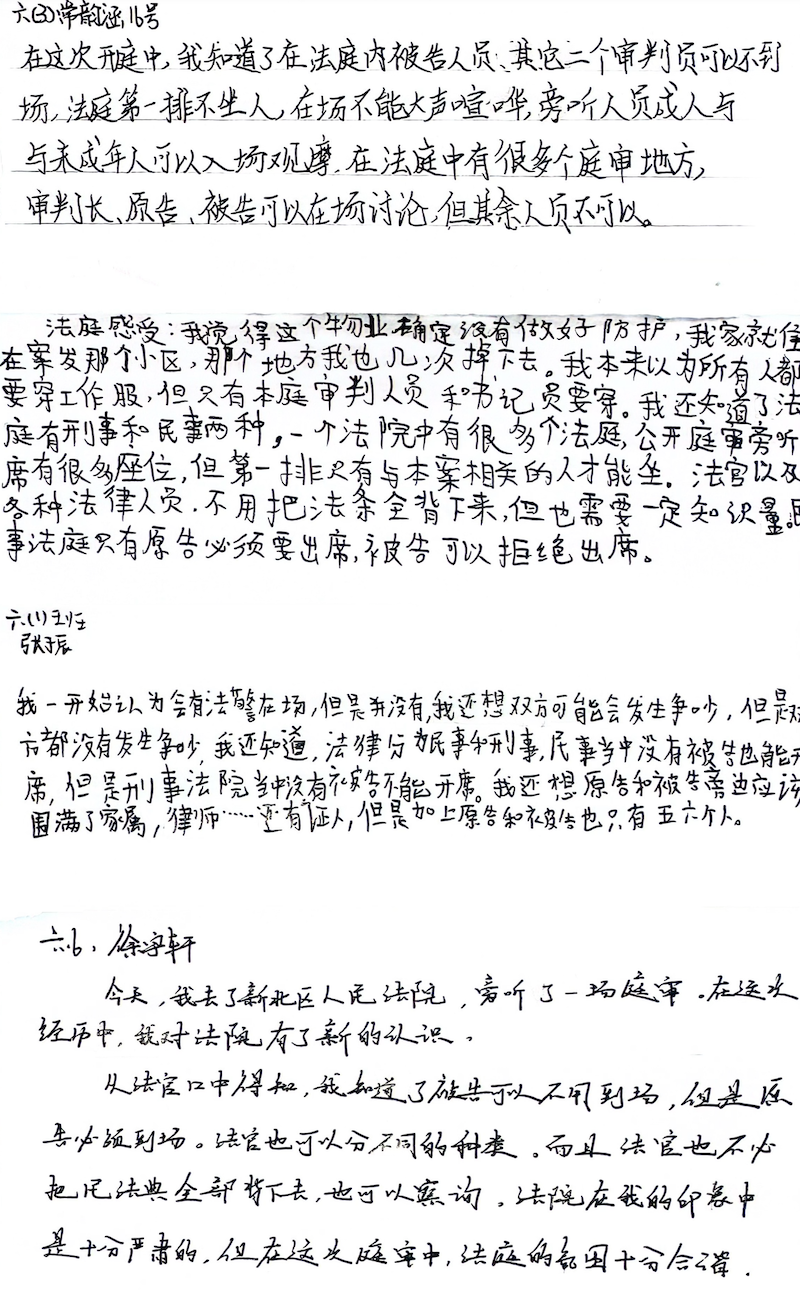 六(3)常韵涵16号
在这次开庭中,我知道了在法庭内被告人员、其它二个审判员可以不到
场,法庭第一排不坐人,在场不能大声喧哗,旁听人员成人与
与未成年人可以入场观摩.在法庭中有很多个庭审地方,
审判长、原告、被告可以在场讨论,但其余人员不可以。
法庭感受:我觉得这个物业确定没有做好防护,我家就住
在案发那个小区,那个地方我也几次掉下去。我本来以为所有人都
要穿工作服,但只有本庭审判人员和书记员要穿。我还知道了法
庭有刑事和民事两种,一个法院中有很多个法庭,公开庭审旁听
席有很多座位,但第一排只有与本案相关的人才能坐。法官以及
各种法律人员.不用把法条全背下来,但也需要一定知识量。民
事法庭只有原告必须要出席,被告可以拒绝出席。
六(1)班
张辰
我一开始认为会有法警在场,但是并没有,我还想双方可能会发生争吵,但是双
方都没有发生争吵,我还知道,法律分为民事和刑事,民事当中没有被告也能开
席,但是刑事法院当中没有被告不能开席。我还想原告和被告旁边应该
围满了家属,律师……还有证人,但是加上原告和被告也只有五六个人。
六.6、徐宇轩
今天,我去了新北区人民法院,旁听了一场庭审.在这次
经历中,我对法院有了新的认识.
从法官口中得知,我知道了被告可以不用到场,但是原
告必须到场。法官也可以分不同的种类.而且法官也不必
把民法典全部背下去,也可以查询.法院在我的印象中
是十分严肃的,但在这次庭审中,法庭的氛围十分合谐.